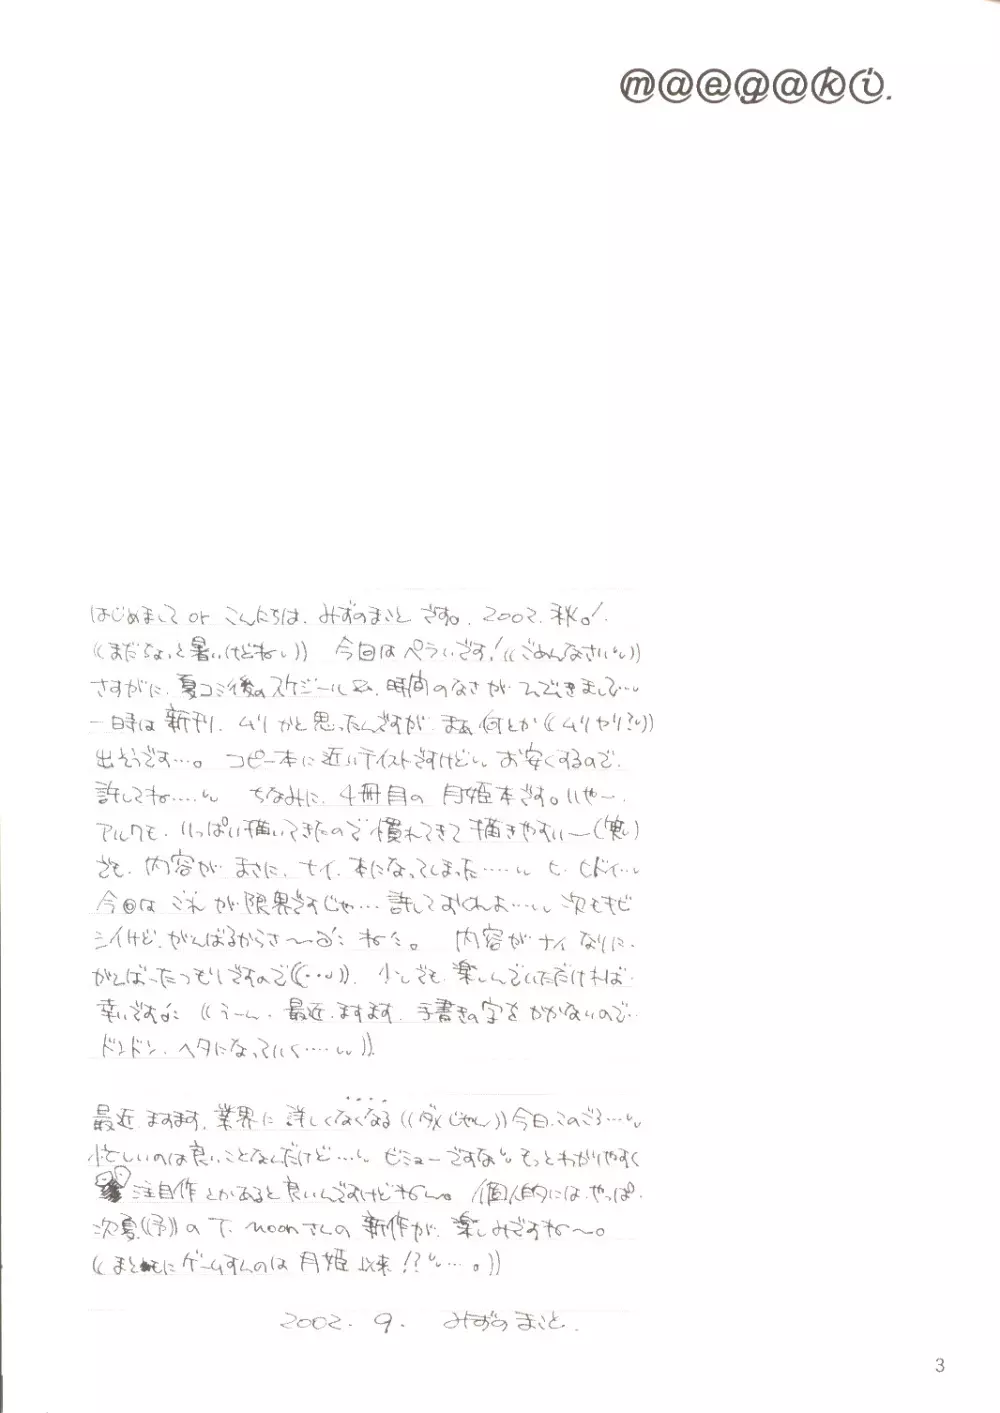 m@eg@ki.
はじめまして or こんにちは、みずのまことです。2002.秋。!
((まだちょっと暑いけどねい)) 今回はペラいです!((ごめんなさい))
さすがに、夏コミ後のスケジュール&、時間のなさが
一時は新刊、ムリかと思ったんですが、まぁ何とか((ムリヤリ?))
出そうです…。コピー本に近いテイストですけどい お安くするので、
許してね…… ちなみに、4冊目の月姫本です。いや〜、
アルクも、いっぱい描いてきたので慣れてきて描きやすい〜(笑)
でも、内容が、まさに、ナイ、本になってしまった…… ヒ、ヒドイ…
今回は これが限界ですじゃ… 許しておくれよ… 次もキビ
シイけど、がんばるからさ〜 ね。 内容がナイなりに、
がんばったつもりですので((…))、少しでも、楽しんでいただければ
幸いです ((うーん、最近、ますます、手書きの字をかかないので…
ドンドン、ヘタになっていく……))
最近、ますます、業界に詳しくなくなる((ダメじゃん))今日このごろ…
忙しいのは良いことなんだけど… ビミョーですな もっとわかりやすく
注目作とかあると良いんですけどね〜。個人的には、やっぱ、
次夏((予))のT.moonさんの新作が、楽しみですね〜。
((まともにゲームすんのは月姫以来!?…。))
2002.9. みずのまこと.
3